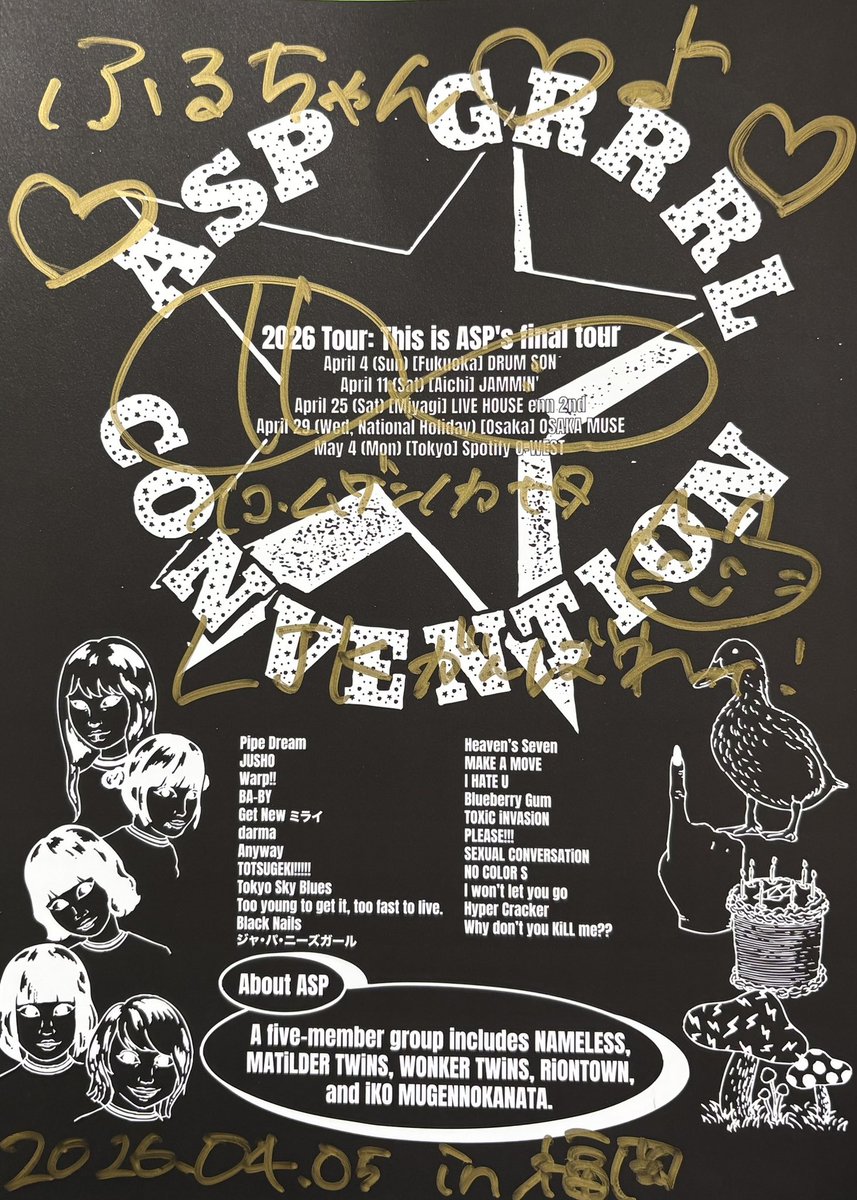 ふるちゃん♡
ASP GRRRL
2026 Tour: This is ASP's final tour
April 4 (Sun) [Fukuoka] DRUM SON
April 11 (Sat) [Aichi] JAMMIN'
April 25 (Sat) [Miyagi] LIVE HOUSE enn 2nd
April 29 (Wed, National Holiday) [Osaka] OSAKA MUSE
May 4 (Mon) [Tokyo] Spotify O-WEST
イコ・ムゲンノカナタ
CONVENTION
LJKがんばれー!
Pipe Dream
JUSHO
Warp!!
BA-BY
Get New ミライ
darma
Anyway
TOTSUGEKI!!!!!
Tokyo Sky Blues
Too young to get it, too fast to live.
Black Nails
ジャ・パ・ニーズガール
Heaven's Seven
MAKE A MOVE
I HATE U
Blueberry Gum
TOXiC iNVASiON
PLEASE!!!
SEXUAL CONVERSATiON
NO COLOR S
I won't let you go
Hyper Cracker
Why don't you KiLL me??
About ASP
A five-member group includes NAMELESS,
MATiLDER TWiNS, WONKER TWiNS, RiONTOWN,
and iKO MUGENNOKANATA.
2026.04.05 in 福岡